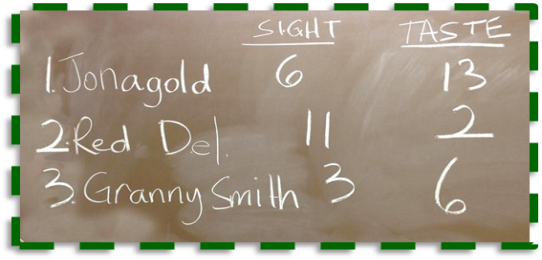 SIGHT TASTE
1. Jonagold 6 13
2. Red Del. 11 2
3. Granny Smith 3 6